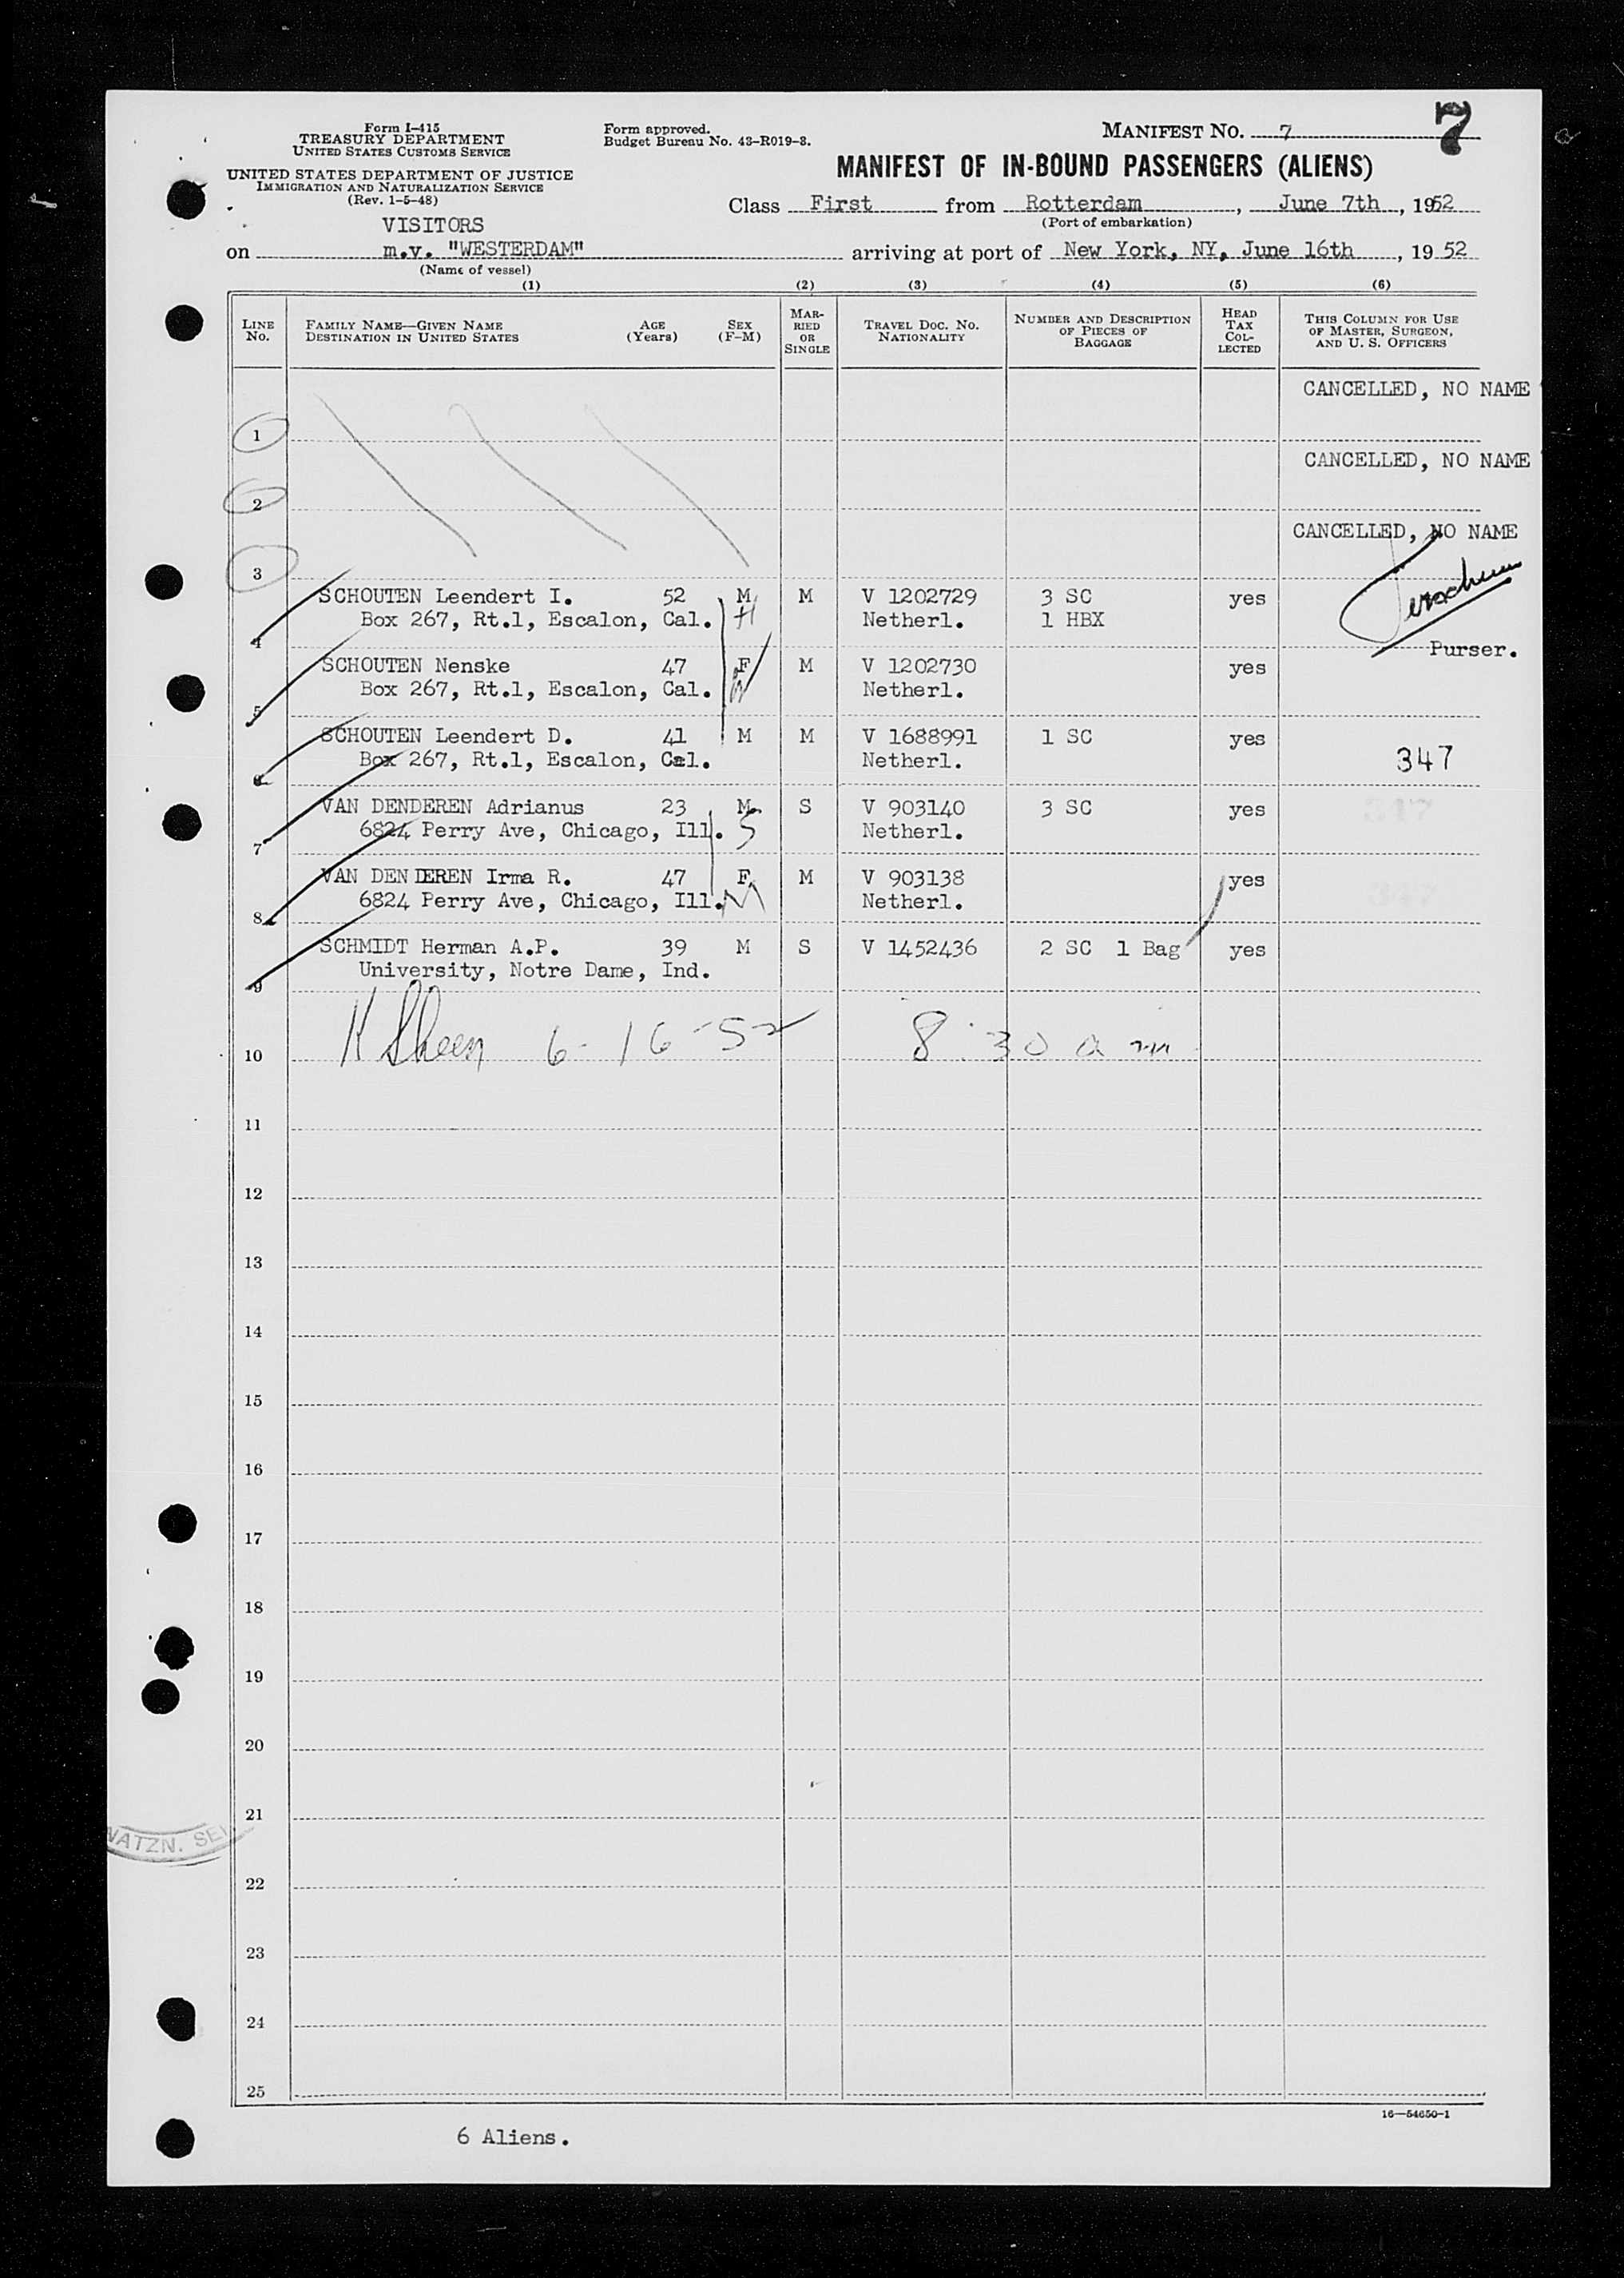 Form I-415
TREASURY DEPARTMENT
UNITED STATES CUSTOMS SERVICE
UNITED STATES DEPARTMENT OF JUSTICE
IMMIGRATION AND NATURALIZATION SERVICE
(Rev. 1-5-48)
Form approved.
Budget Bureau No. 43-R019-3.
MANIFEST NO. 7
7
MANIFEST OF IN-BOUND PASSENGERS (ALIENS)
Class First from Rotterdam, June 7th, 1952
(Port of embarkation)
VISITORS
on m.v. "WESTERDAM" arriving at port of New York, NY, June 16th, 1952
(Name of vessel)
(1) (2) (3) (4) (5) (6)
LINE No.
FAMILY NAME—GIVEN NAME AGE (Years) SEX (F-M)
DESTINATION IN UNITED STATES
MARRIED OR SINGLE
TRAVEL DOC. NO. NATIONALITY
NUMBER AND DESCRIPTION OF PIECES OF BAGGAGE
HEAD TAX COLLECTED
THIS COLUMN FOR USE OF MASTER, SURGEON, AND U. S. OFFICERS
CANCELLED, NO NAME
1
CANCELLED, NO NAME
2
CANCELLED, NO NAME
3
SCHOUTEN Leendert I. 52 M M V 1202729 3 SC yes
Box 267, Rt.1, Escalon, Cal. H Netherl. 1 HBX
4
Purser.
SCHOUTEN Nenske 47 F M V 1202730 yes
Box 267, Rt.1, Escalon, Cal. W Netherl.
5
SCHOUTEN Leendert D. 41 M M V 1688991 1 SC yes
Box 267, Rt.1, Escalon, Cal. Netherl. 347
6
VAN DENDEREN Adrianus 23 M S V 903140 3 SC yes
6824 Perry Ave, Chicago, Ill. S Netherl.
7
VAN DENDEREN Irma R. 47 F M V 903138 yes
6824 Perry Ave, Chicago, Ill. M Netherl.
8
SCHMIDT Herman A.P. 39 M S V 1452436 2 SC 1 Bag yes
University, Notre Dame, Ind.
9
K Sheen 6-16-52 8:30 am
10
11
12
13
14
15
16
17
18
19
20
21
NATZN. SE
22
23
24
25
16—54650-1
6 Aliens.